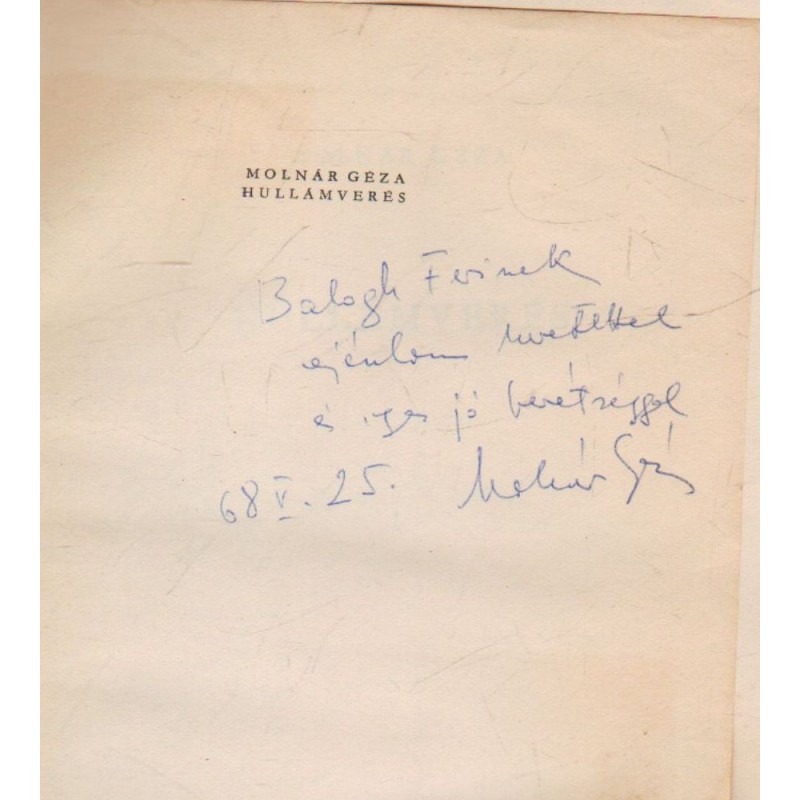 MOLNÁR GÉZA
HULLÁMVERÉS
Balogh Ferinek
ajánlom szeretettel
és igaz jó barátsággal
68 V. 25. Molnár Géza